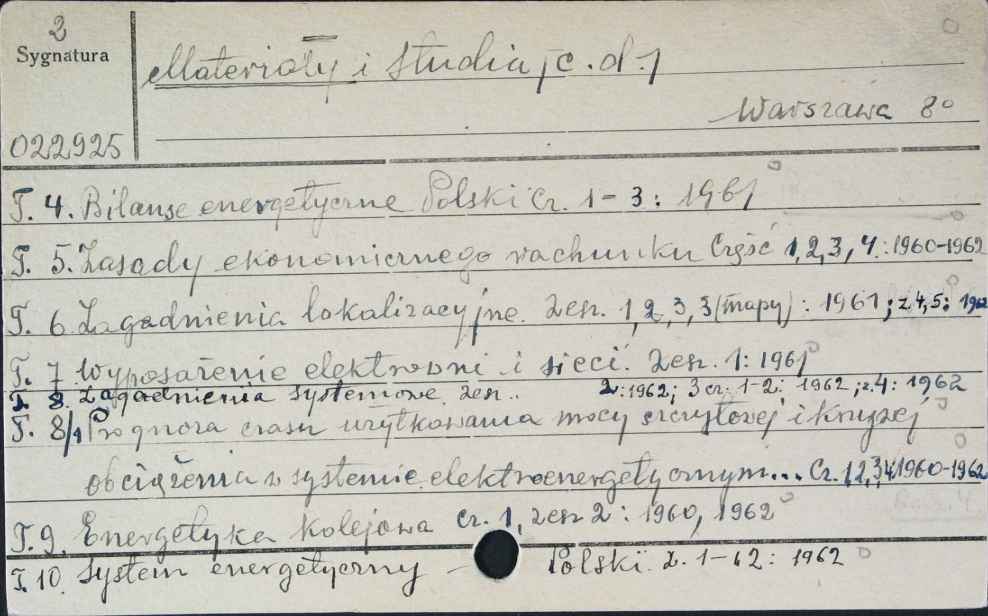 2
Sygnatura
Materiały i studia, c.d.)
Warszawa 8°
022925
T. 4. Bilanse energetyczne Polski Cz. 1-3: 1961
T. 5. Zasady ekonomicznego rachunku Część 1,2,3,4.: 1960-1962
T. 6. Zagadnienia lokalizacyjne. Zesz. 1,2,3,3 (mapy): 1961; z.4,5: 1962
T. 7 Wyposażenie elektrowni i sieci. Zesz. 1: 1961
T. 8. Zagadnienia systemowe. Zesz.. 2: 1962; 3 cz. 1-2: 1962; z.4: 1962
T. 8/1 Prognoza czasu użytkowania mocy szczytowej i krzywej
obciążenia w systemie elektroenergetycznym... Cz. 1,2,3,4 1960-1962
T. 9. Energetyka kolejowa cz. 1, zesz 2: 1960, 1962
T. 10. System energetyczny - Polski. Z. 1-12: 1962